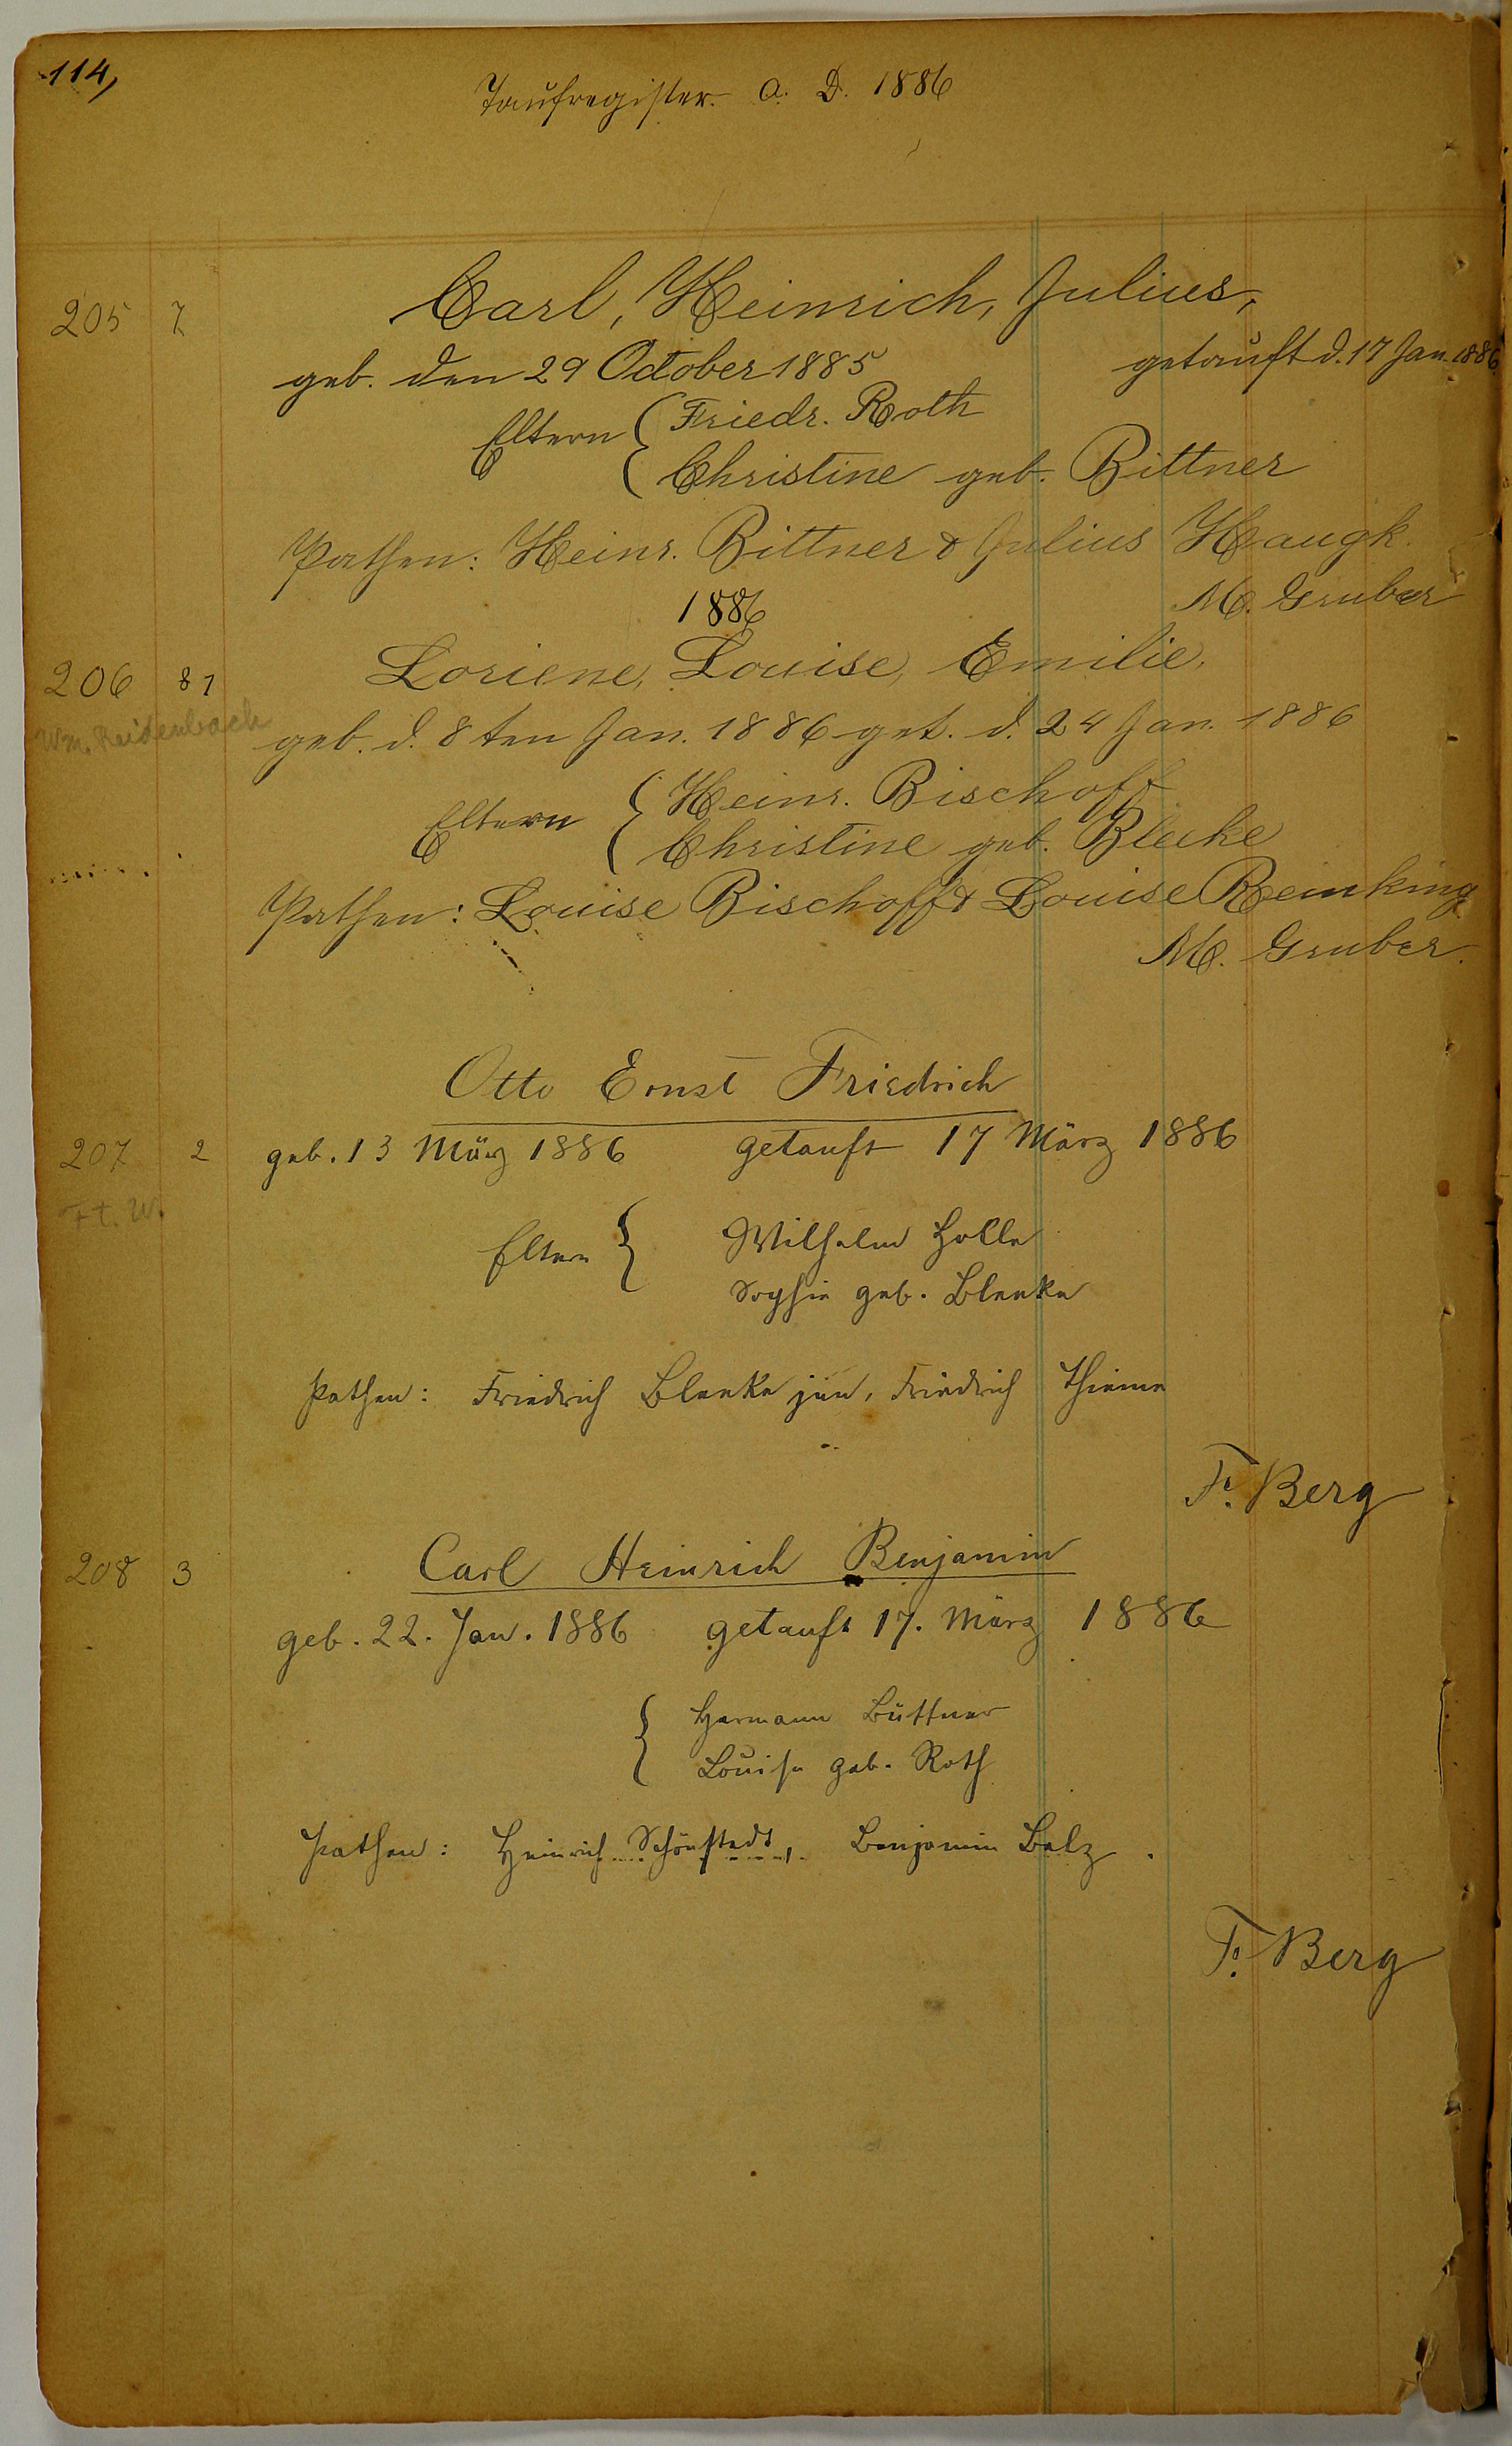 114,
Taufregister. A. D. 1886
205 7 Carl, Heinrich, Julius,
geb. den 29 October 1885 getauft d. 17 Jan. 1886.
Eltern { Friedr. Roth
Christine geb. Bittner
Pathen: Heinr. Bittner & Julius Haugk.
M. Gruber
1886
206 81 Loriene, Louise, Emilie,
Wm. Reidenbach
geb. d. 8ten Jan. 1886 get. d. 24 Jan. 1886
Eltern { Heinr. Bischoff
Christine geb. Bleeke
Pathen: Louise Bischoff & Louise Reinking
M. Gruber.
Otto Ernst Friedrich
207 2 geb. 13 März 1886 getauft 17 März 1886
Ft. W.
Eltern { Wilhelm Holle
Sophie geb. Bleeke
Pathen: Friedrich Bleeke jun, Friedrich Thieme
F. Berg
208 3 Carl Heinrich Benjamin
geb. 22. Jan. 1886 getauft 17. März 1886
{ Hermann Büttner
Louise geb. Roth
Pathen: Heinrich Schönstedt, Benjamin Balz.
F. Berg